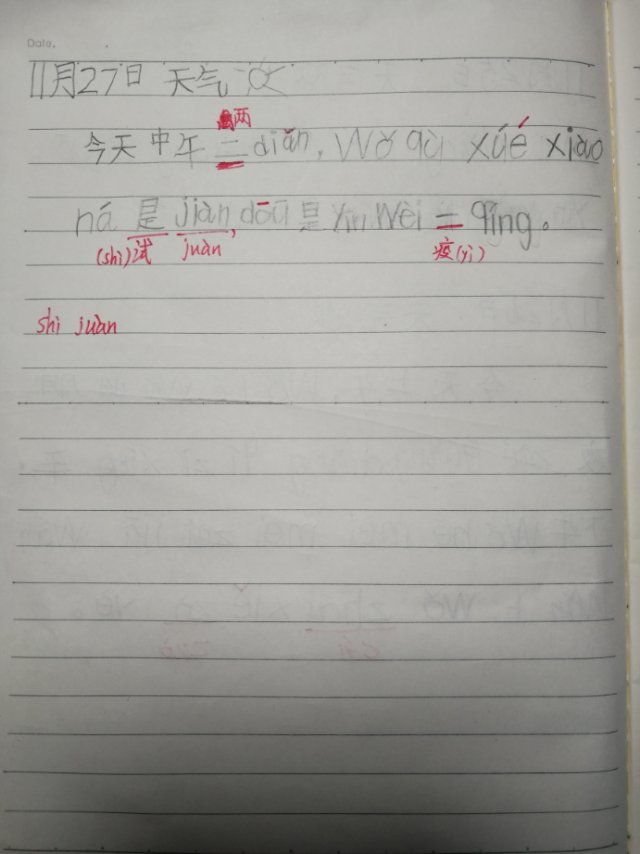 Date.
11月27日 天气
两
今天中午二diǎn, Wǒ qù xué xiào
ná 是 jiàn, dōū 是 Yīn Wèi 二 qíng。
(shì)试 juàn 疫(yì)
shì juàn